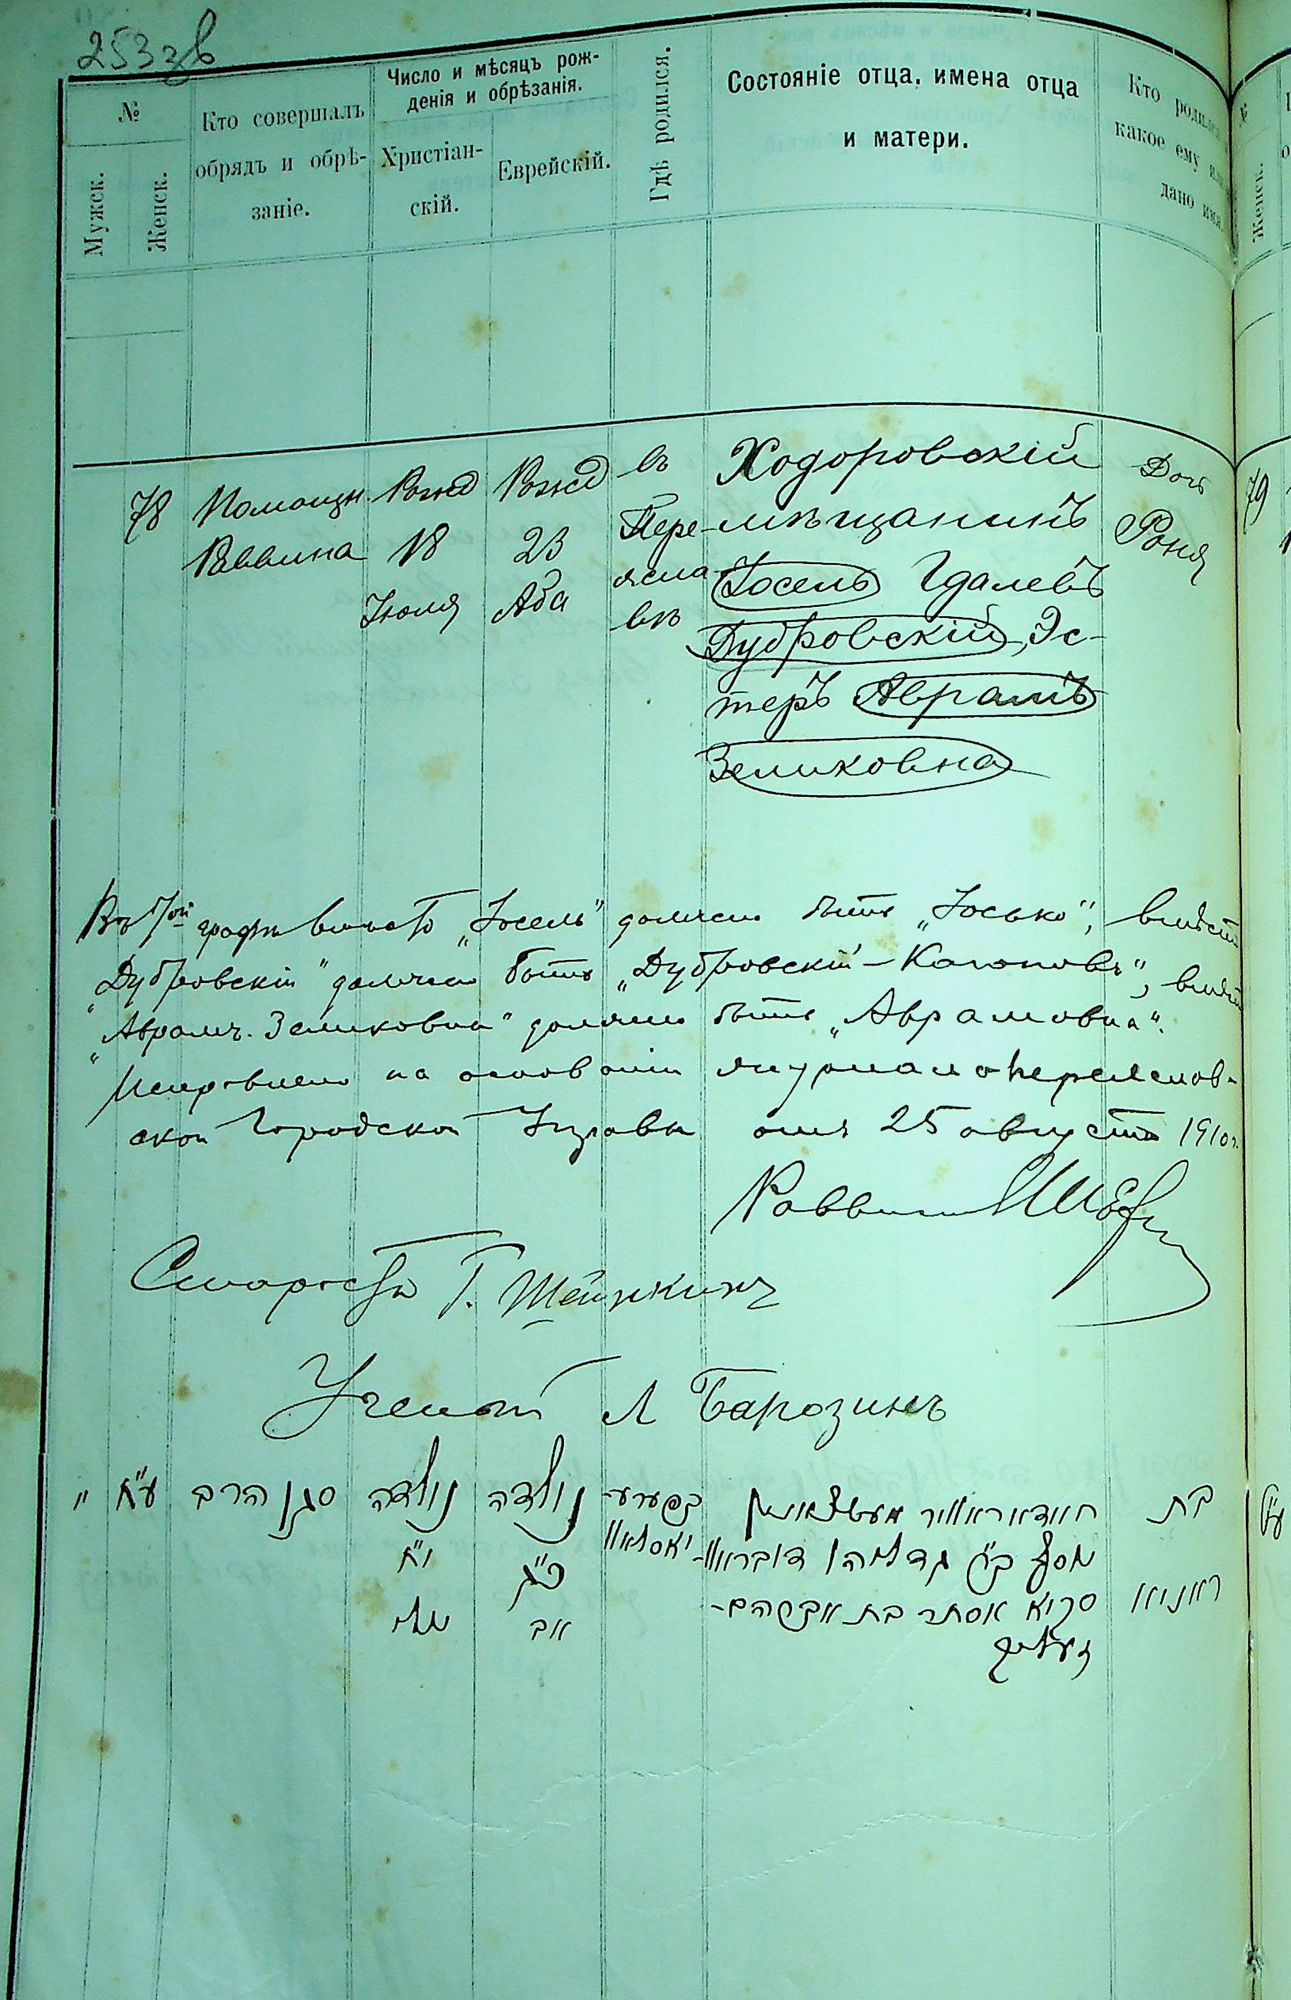 253 зв
№
Мужск.
Женск.
Кто совершалъ
обрядъ и обрѣ-
заніе.
Число и мѣсяцъ рож-
денія и обрѣзанія.
Христіан-
скій.
Еврейскій.
Гдѣ родился.
Состояніе отца, имена отца
и матери.
Кто родился
какое ему или
дано имя.
Женск.
78
Помощн.
Раввина
Рожд
18
Іюля
Рожд
23
Аба
въ
Пере-
ясла
вѣ
Ходоровскій
мѣщанинъ
Іосель Гдалевъ
Дубровскій, Эс-
теръ Аврамъ
Зеликовна
Дочь
Роня
79
Въ 7ой графѣ вмѣсто „Іосель" должно быть „Іосько", вмѣсто
„Дубровскій" должно быть „Дубровскій-Кагановъ", вмѣсто
„Аврамъ-Зеликовна" должно быть „Аврамовна".
Исправлено на основаніи журнала Переяслав-
ской Городской Управы отъ 25 августа 1910 г.
Раввинъ
Староста Г. Шейнкинъ
Ученый Л Барозинъ
" ע"ח
סגן הרב
נולדה
י"ח
יולי
נולדה
כ"ג
אב
בפערע-
יאסלאוו
חאדאראווער
יוסל ב"ר גדליהו דובראוו-
סקיא אסתר בת אברהם-
זעליג
בת
ראניא
ע"ט